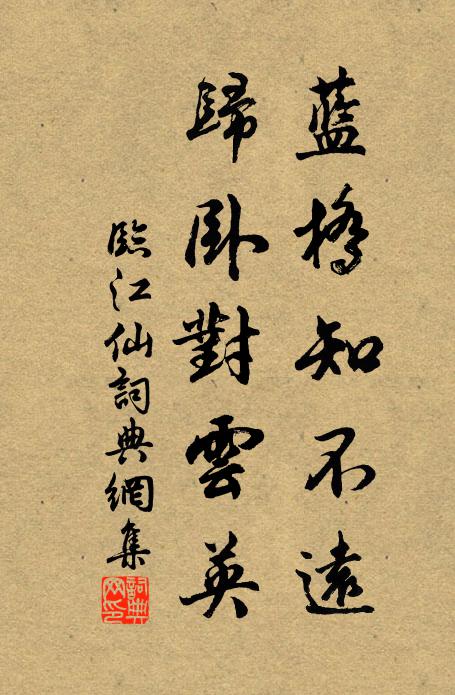 藍橋知不遠
歸臥對雲英
臨江仙詞典網集
詞典網印